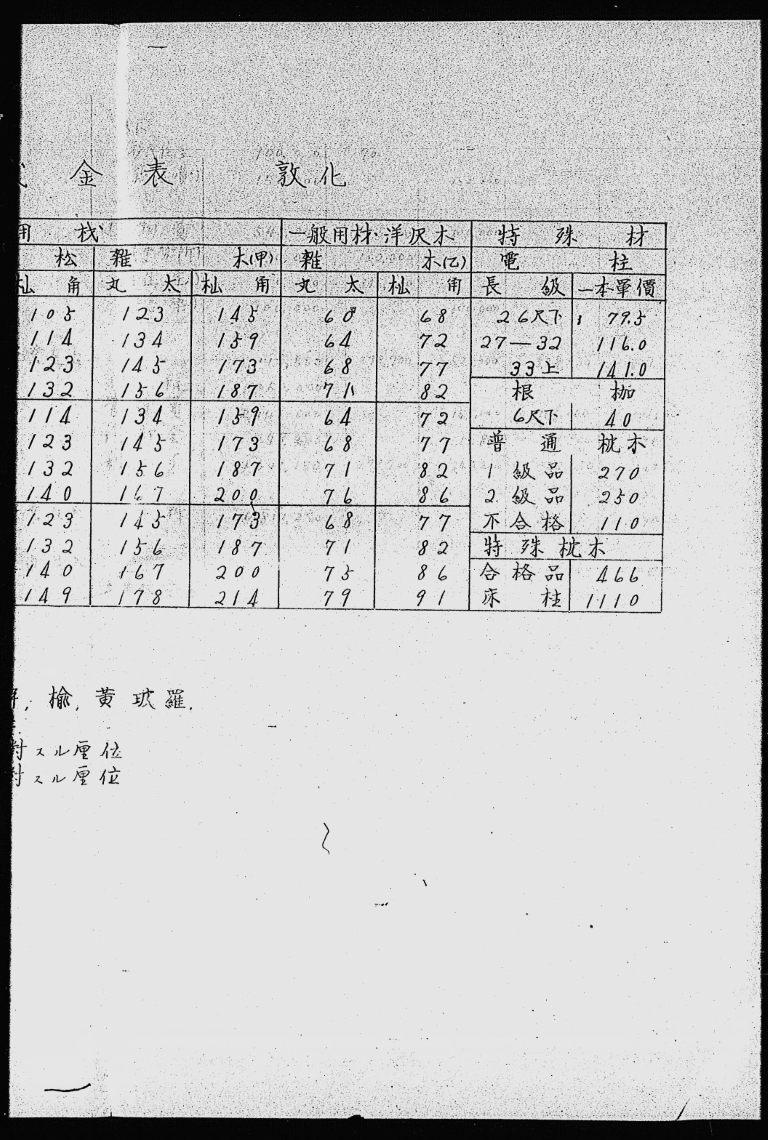 金 表 敦 化
用 材 一般用材·洋灰木 特 殊 材
松 雜 木(甲) 雜 木(乙) 電 柱
杣 角 丸 太 杣 角 丸 太 杣 角 長 級 一本單價
105 123 145 60 68 26尺下 79.5
114 134 159 64 72 27—32 116.0
123 145 173 68 77 33上 141.0
132 156 187 71 82 根 枷
114 134 159 64 72 6尺下 40
123 145 173 68 77 普 通 枕木
132 156 187 71 82 1 級 品 270
140 167 200 76 86 2 級 品 250
123 145 173 68 77 不合格 110
132 156 187 71 82 特 殊 枕 木
140 167 200 75 86 合 格 品 466
149 178 214 79 91 床 柱 1110
, 楡, 黄 玻 羅.
對スル厘位
對スル厘位